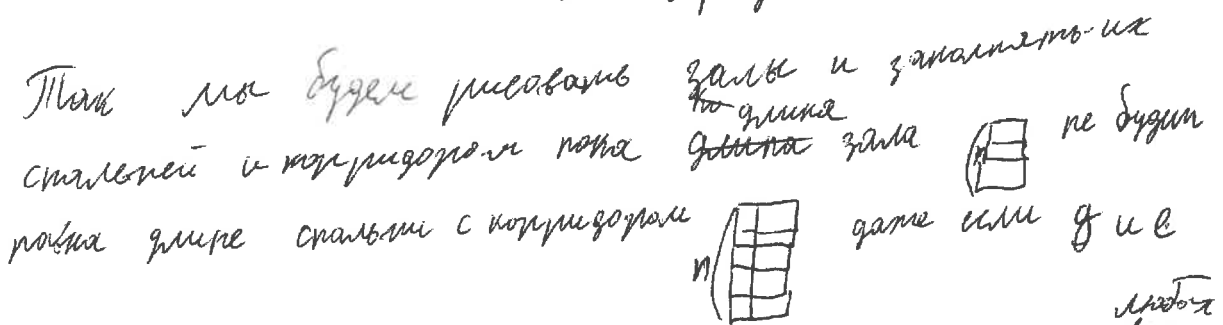 Так мы будем рисовать залы и заполнять их
спальней и корридором пока длина зала n не будет
равна длине спальни с корридором n даже если д и с
любая